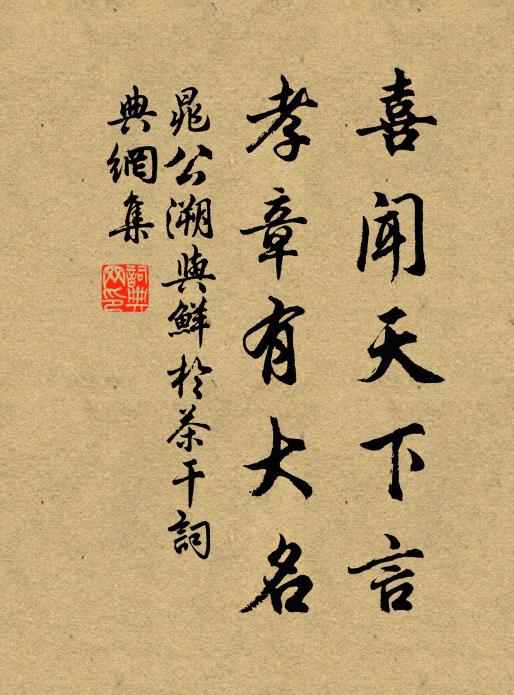 喜闻天下言
孝章有大名
晁公溯與鮮於茶干詞
典網集
詞典網印